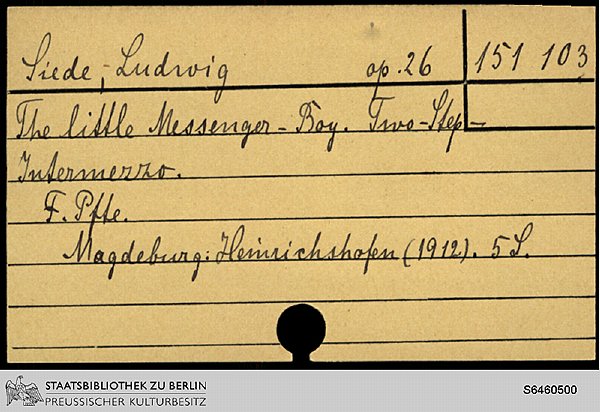 Siede, Ludwig op. 26 151 103
The little Messenger-Boy. Two-Step-
Intermezzo.
F. Pfte.
Magdeburg: Heinrichshofen (1912). 5 S.
STAATSBIBLIOTHEK ZU BERLIN
PREUSSISCHER KULTURBESITZ
S6460500